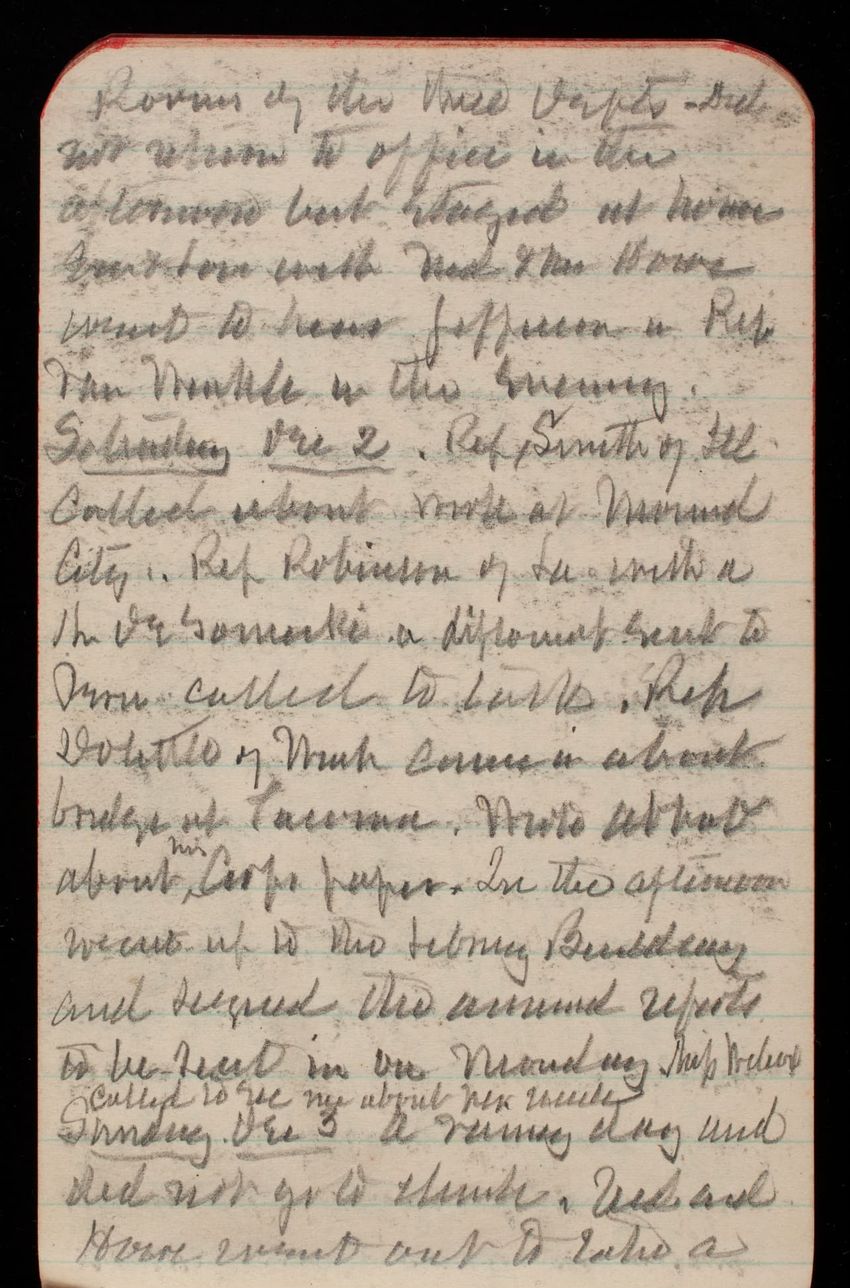 Rooms of the three Depts - Did
not return to office in the
afternoon but stayed at home
with Ned & Mr Howe
went to hear Jefferson in Rip
Van Winkle in the evening.
Saturday Dec 2. Rep Smith of Ill
called about work at Mound
City. Rep Robinson of La with a
Mr a diplomat sent to
called to talk. Rep
Dolittle of Wash came in about
bridge at Tacoma. Wrote Abbot
about his Corps paper. In the afternoon
went up to the Library Building
and signed the annual reports
to be sent in on Monday. Miss Wilcox
called to see me about her
Sunday Dec 3 A rainy day and
did not go to church. Ned and
Howe went out to take a